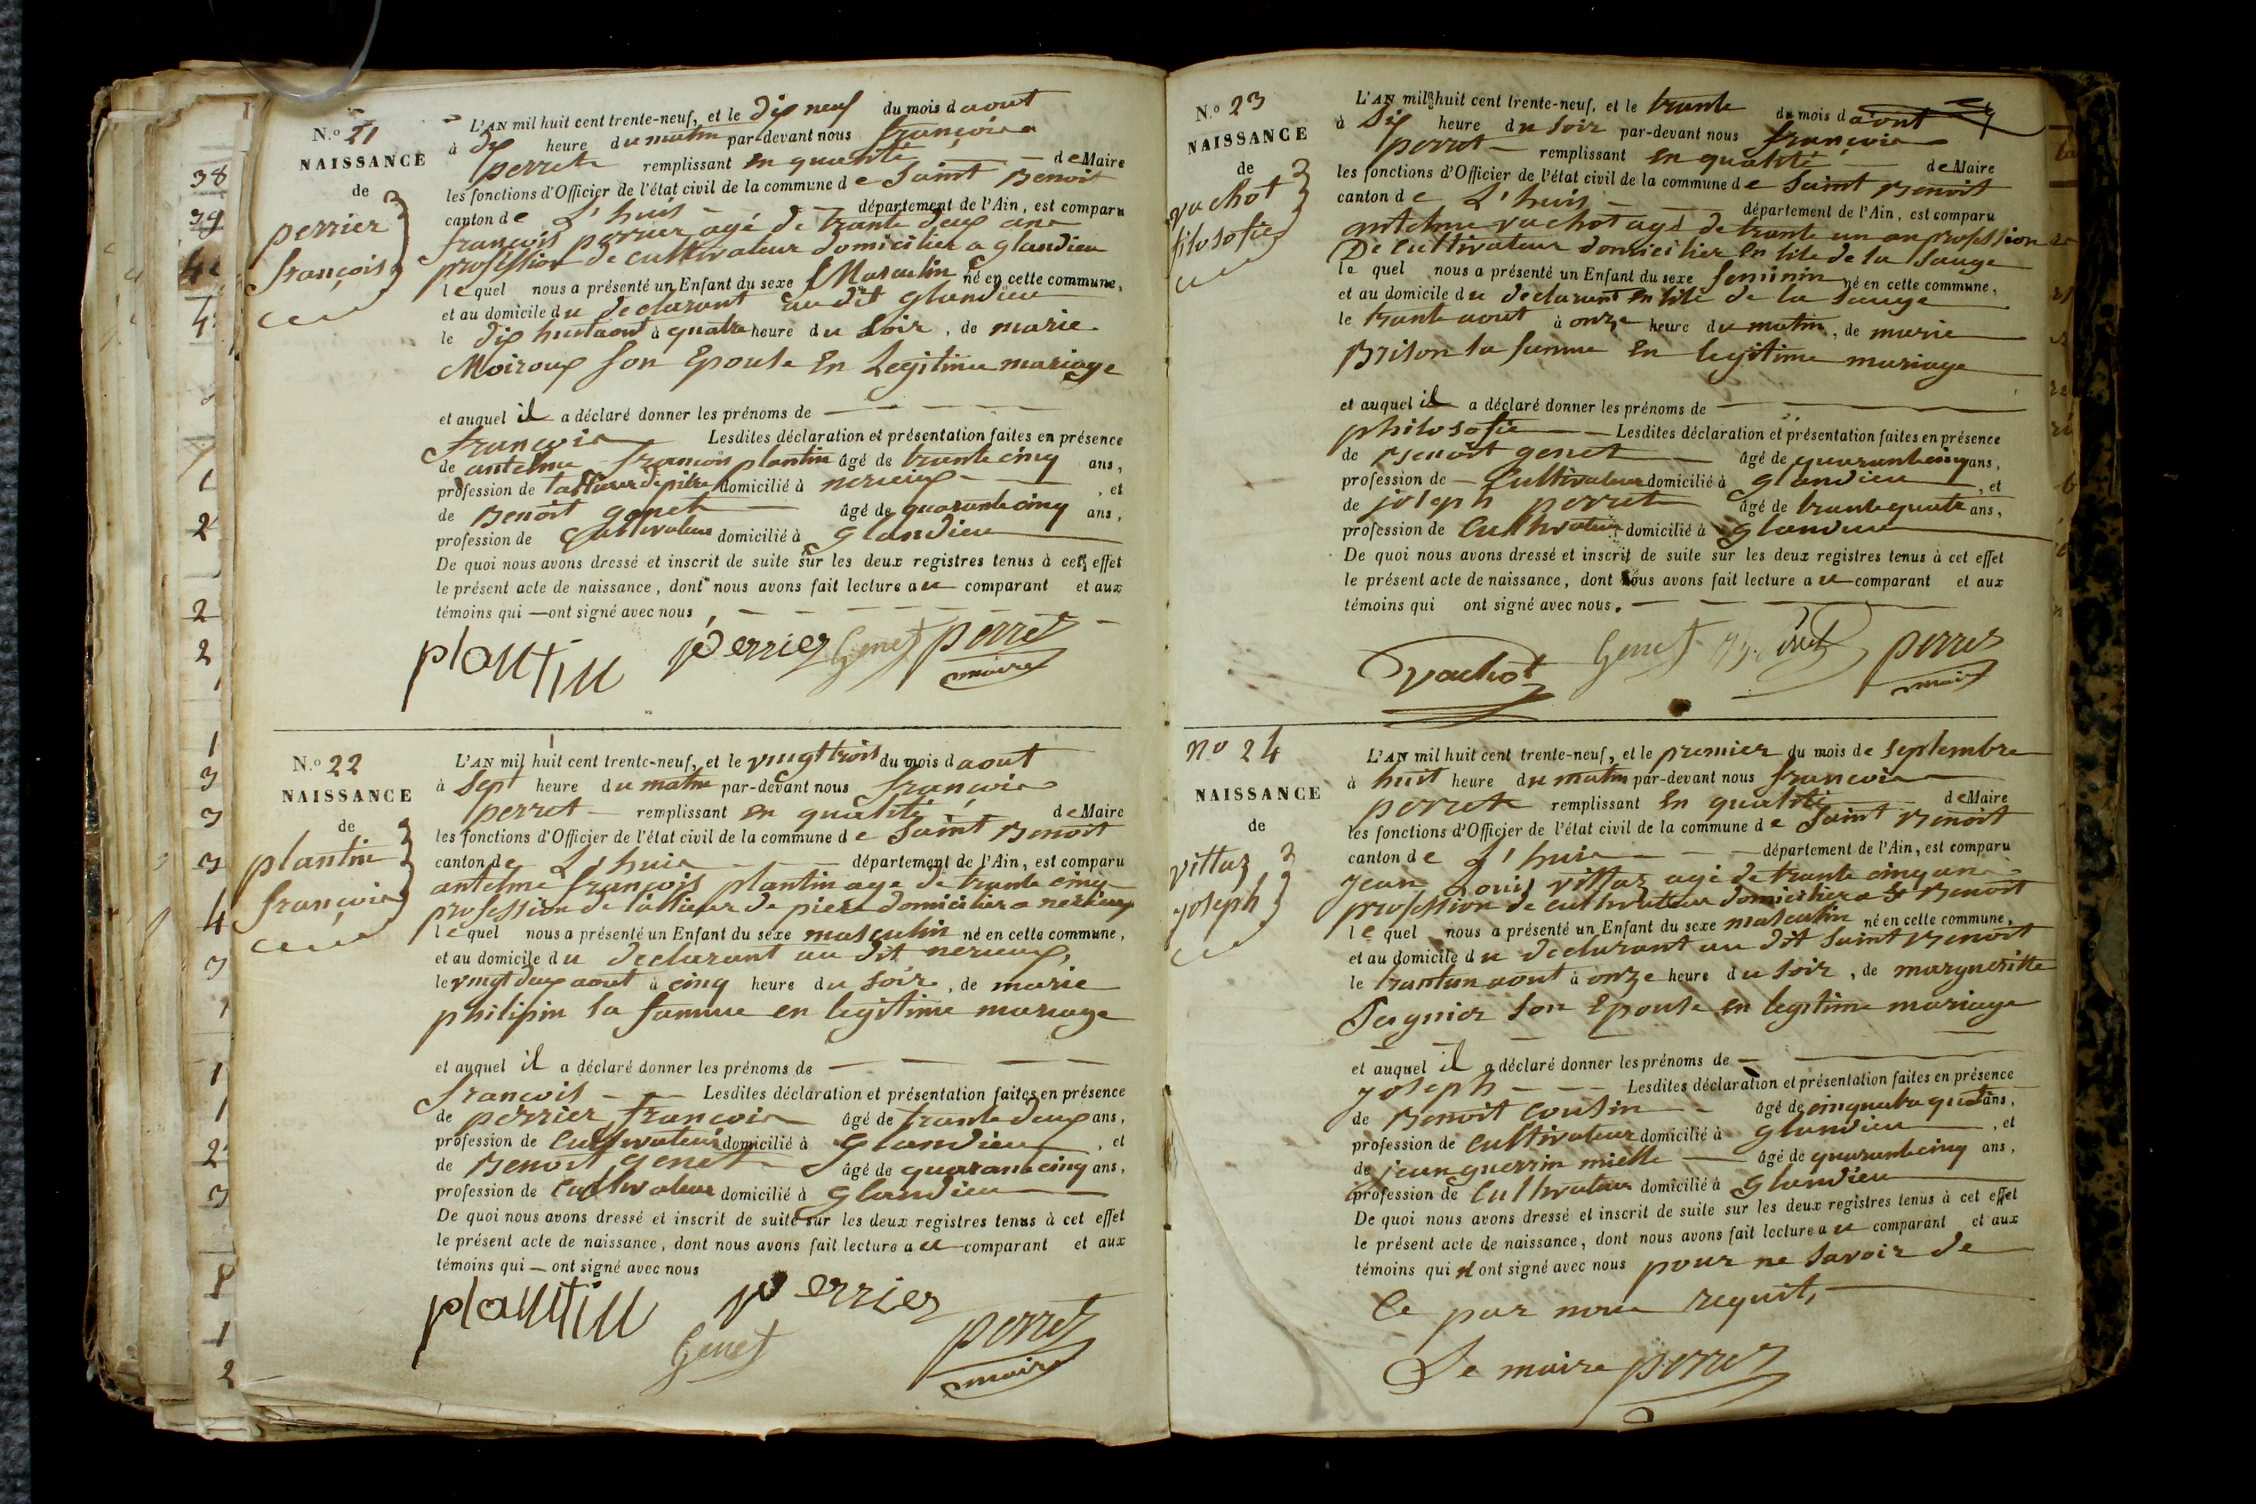 N.o 21
NAISSANCE
de
perrier
françois
L'AN mil huit cent trente-neuf, et le dix neuf du mois d aout
à dix heure du matin par-devant nous françois
perret remplissant en qualité de Maire
les fonctions d'Officier de l'état civil de la commune de Saint Benoit
canton de L'huis département de l'Ain, est comparu
françois perrier agé de trante deux ans
profession de cultivateur domicilier a glandieu
lequel nous a présenté un Enfant du sexe Masculin né en cette commune,
et au domicile du declarant au dit glandieu
le dix huit aout à quatre heure du soir, de marie
Moiroux son Epouse En Legitime mariage
et auquel il a déclaré donner les prénoms de
françois Lesdites déclaration et présentation faites en présence
de antelme françois plantin âgé de trante cinq ans,
profession de tallieur de pière domicilié à nerieux, et
de Benoit genet âgé de quarante cinq ans,
profession de Cultivateur domicilié à glandieu
De quoi nous avons dressé et inscrit de suite sur les deux registres tenus à cet effet
le présent acte de naissance, dont nous avons fait lecture au comparant et aux
témoins qui ont signé avec nous,
plantin perrier Genet perret
maire
N.o 22
NAISSANCE
de
plantin
françois
L'AN mil huit cent trente-neuf, et le vingt trois du mois d aout
à sept heure du matin par-devant nous françois
perret remplissant en qualité de Maire
les fonctions d'Officier de l'état civil de la commune de Saint Benoit
canton de L'huis département de l'Ain, est comparu
antelme françois plantin age de trante cinq
profession de tallieur de piere domicilier a nerieux
lequel nous a présenté un Enfant du sexe masculin né en cette commune,
et au domicile du declarant au dit nerieux,
le vingt deux aout à cinq heure du soir, de marie
philipin sa famme en legitime mariage
et auquel il a déclaré donner les prénoms de
françois Lesdites déclaration et présentation faites en présence
de perrier françois âgé de trante deux ans,
profession de cultivateur domicilié à glandieu, et
de Benoit genet âgé de quarante cinq ans,
profession de cultivateur domicilié à glandieu
De quoi nous avons dressé et inscrit de suite sur les deux registres tenus à cet effet
le présent acte de naissance, dont nous avons fait lecture au comparant et aux
témoins qui ont signé avec nous
plantin perrier
Genet perret
maire
N.o 23
NAISSANCE
de
vachot
filosofie
L'AN mil huit cent trente-neuf, et le trante du mois d aout
à Six heure du soir par-devant nous françois
perret remplissant en qualité de Maire
les fonctions d'Officier de l'état civil de la commune de Saint Benoit
canton de L'huis département de l'Ain, est comparu
antelme vachot agé de trante un an profession
De cultivateur domicilier en lile de la Sauge
le quel nous a présenté un Enfant du sexe feminin né en cette commune,
et au domicile du declarant en lile de la sauge
le trante aout à onze heure du matin, de marie
Brison sa famme en legitime mariage
et auquel il a déclaré donner les prénoms de
philosofie Lesdites déclaration et présentation faites en présence
de Benoit genet âgé de quarante cinq ans,
profession de Cultivateur domicilié à glandieu, et
de joseph perret âgé de trante quatre ans,
profession de Cultivateur domicilié à glandieu
De quoi nous avons dressé et inscrit de suite sur les deux registres tenus à cet effet
le présent acte de naissance, dont nous avons fait lecture au comparant et aux
témoins qui ont signé avec nous.
vachot Genet perret
maire
no 24
NAISSANCE
de
vittaz
joseph
L'AN mil huit cent trente-neuf, et le premier du mois de septembre
à huit heure du matin par-devant nous françois
perret remplissant en qualité de Maire
les fonctions d'Officier de l'état civil de la commune de Saint Benoit
canton de L'huis département de l'Ain, est comparu
jean Louis vittaz agé de trante cinq ans
profession de cultivateur domicilier a St Benoit
le quel nous a présenté un Enfant du sexe masculin né en cette commune,
et au domicile du declarant au dit saint Benoit
le trantun aout à onze heure du soir, de margueritte
son Epouse en legitime mariage
et auquel il a déclaré donner les prénoms de
joseph Lesdites déclaration et présentation faites en présence
de Benoit cousin âgé de cinquante quatre ans,
profession de cultivateur domicilié à glandieu, et
de jean guerrin miette âgé de quarante cinq ans,
profession de Cultivateur domicilié à glandieu
De quoi nous avons dressé et inscrit de suite sur les deux registres tenus à cet effet
le présent acte de naissance, dont nous avons fait lecture au comparant et aux
témoins qui n ont signé avec nous pour ne savoir de
ce par nous requit,
Le maire perret